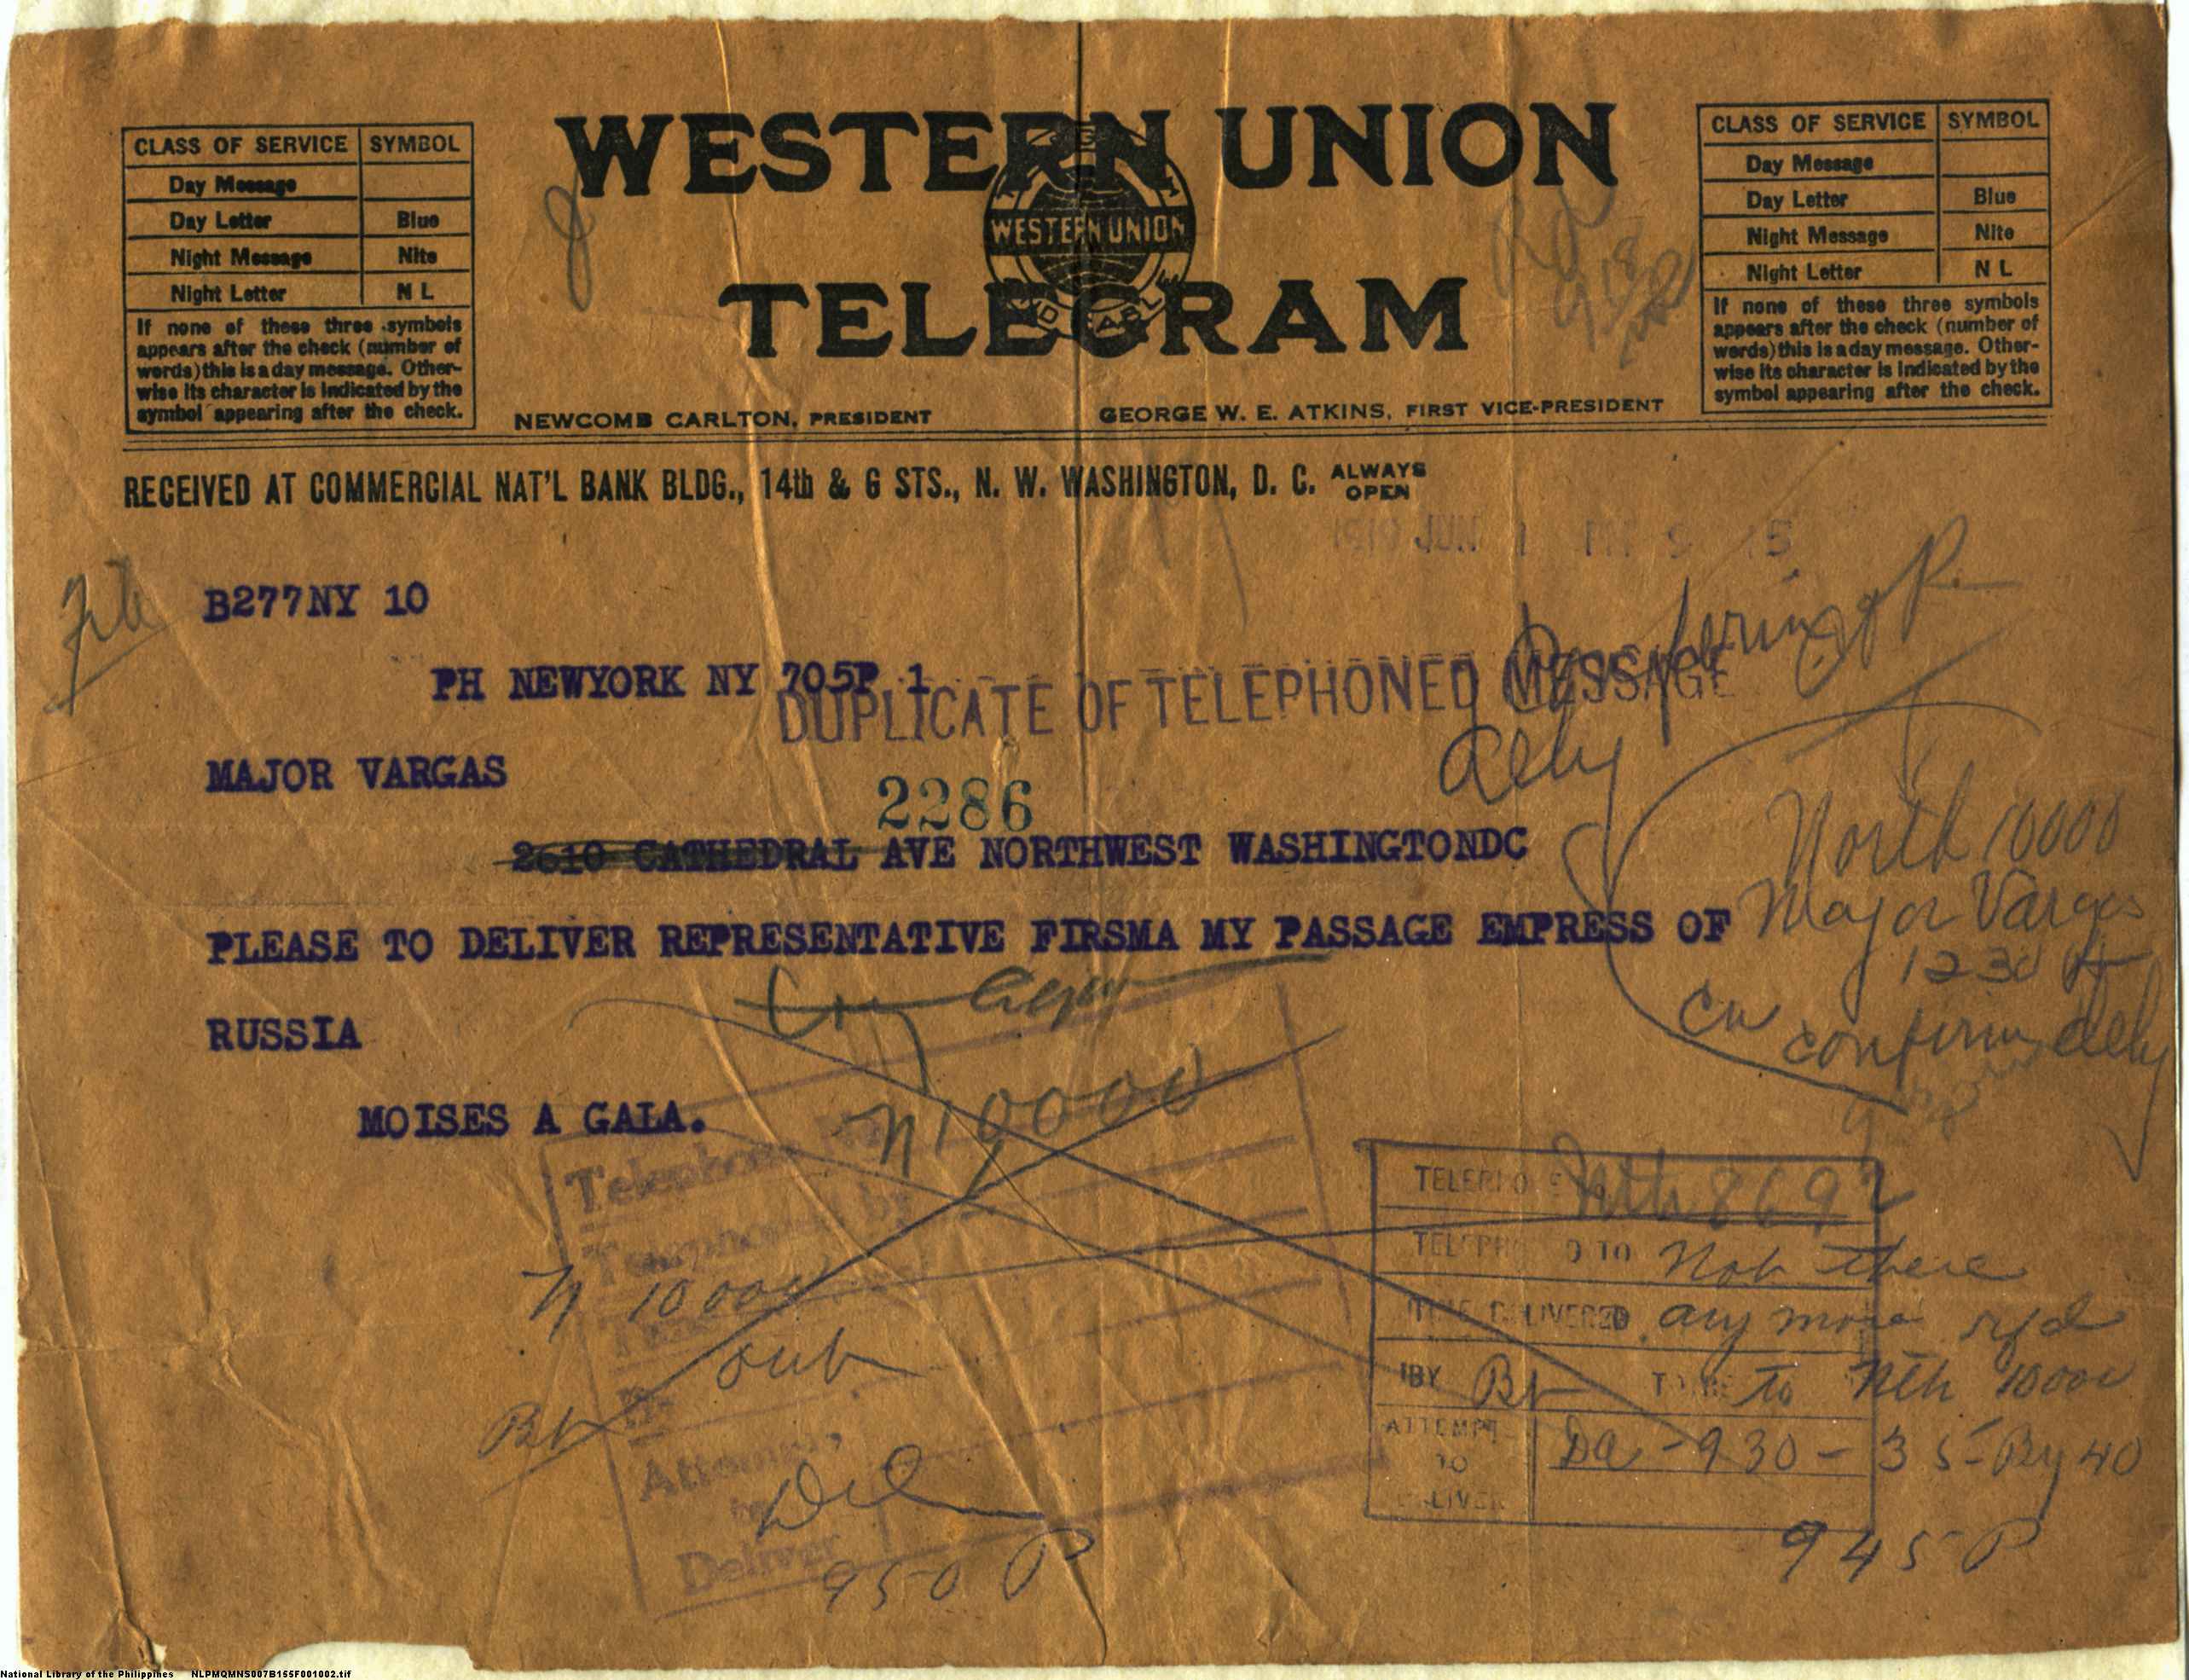 CLASS OF SERVICE SYMBOL
Day Message
Day Letter Blue
Night Message Nite
Night Letter N L
If none of these three symbols
appears after the check (number of
words) this is a day message. Other-
wise its character is indicated by the
symbol appearing after the check.
WESTERN UNION
WESTERN UNION
TELEGRAM
NEWCOMB CARLTON, PRESIDENT
GEORGE W. E. ATKINS, FIRST VICE-PRESIDENT
CLASS OF SERVICE SYMBOL
Day Message
Day Letter Blue
Night Message Nite
Night Letter N L
If none of these three symbols
appears after the check (number of
words) this is a day message. Other-
wise its character is indicated by the
symbol appearing after the check.
RECEIVED AT COMMERCIAL NAT'L BANK BLDG., 14th & G STS., N. W. WASHINGTON, D. C. ALWAYS OPEN
JUN
File
B277NY 10
PH NEWYORK NY 705P 1
DUPLICATE OF TELEPHONED MESSAGE
MAJOR VARGAS
2286
2610 CATHEDRAL AVE NORTHWEST WASHINGTONDC
North 10000
Major Vargas
1230
confirm dely
PLEASE TO DELIVER REPRESENTATIVE FIRSMA MY PASSAGE EMPRESS OF
RUSSIA
MOISES A GALA.
N 10000
Telephone
Telephoned by
N 10000
out
Attempt
to
Deliver
950 P
TELEPHONE Nth 8692
TELEPHONED TO Not there
TIME DELIVERED any more
BY TO BE to Nth 10000
ATTEMPT
TO
DELIVER
930 - 35 - By 40
945 P
National Library of the Philippines NLPMQMNS007B155F001002.tif